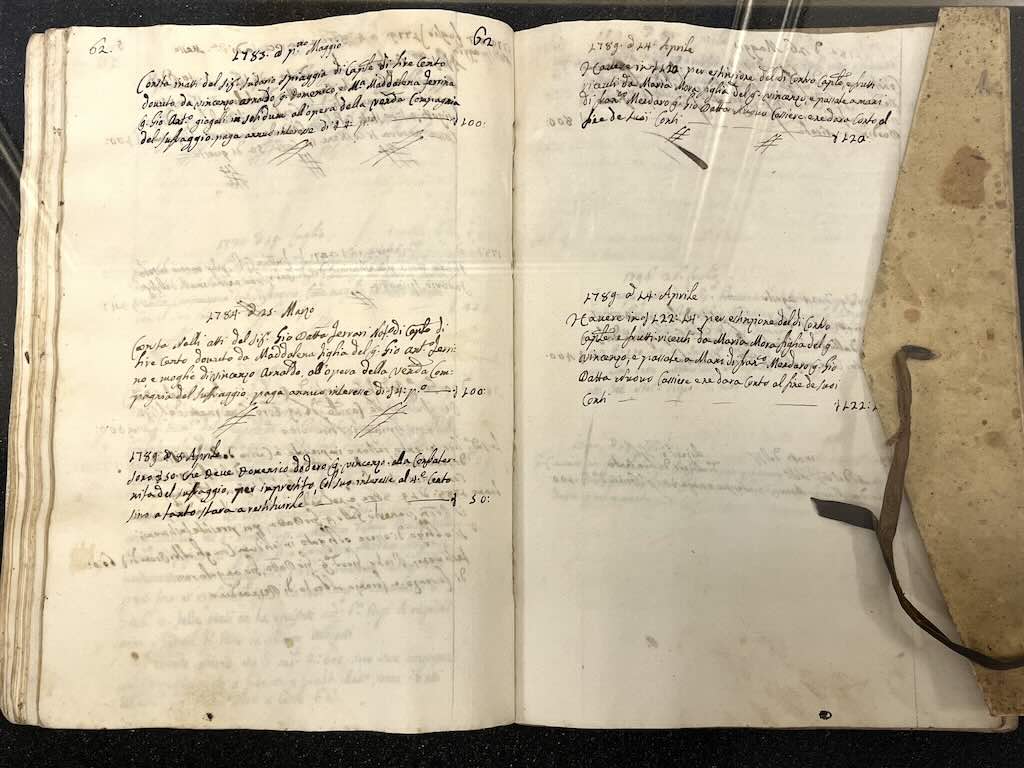 62.
1783. a p.mo Maggio
Consta in atti del Sig.r Sudario Spiaggia di Cap.le di lire Cento
dovute da vincenzo arnaldo q. Domenico e M.a Maddalena Ferrina
q. Gio Ant.o giugali in solidum all'opera della Ven.da Compagnia
del Suffragio. paga annuo interesse di £ 4: p.o £ 100:
1784. a 25. Marzo
Consta Nelli atti del Sig.r Gio Batta Ferrari Not.o di Cap.le di
lire Cento dovuto da Maddalena figlia del q. Gio ant.o Ferri-
no e moglie di vincenzo Arnaldo, all'opera della Ven.da Com-
pagnia del Suffragio. paga annuo interesse di £ 4: p.o £ 100:
1789 a 8 Aprile
Sono £ 50: che deve Domenico dodero q. vincenzo. alla Confrater-
nita del Suffragio, per imprestito, Col suo interesse al 4: p.r Cento
sino a tanto stara a restituirle £ 50:
62
1789. a 14. Aprile
Havere in £ 120: per estinzione del di Contro Cap.le e frutti
ricevuti da Maria Mora figlia del q. vincenzo e passate a mani
di Fran.co Mordaro q. Gio Batta Nuovo Cassiere e ne dara Conto al
fine de suoi Conti £ 120.
1789. a 14. Aprile
Havere in £ 122: 14: per estinzione del di Contro
Cap.le e frutti ricevuti da Maria Mora figlia del q.
vincenzo, e passate a Mani di fran.co Mordaro q. Gio
Batta Nuovo Cassiere e ne dara Conto al fine de suoi
Conti £ 122: